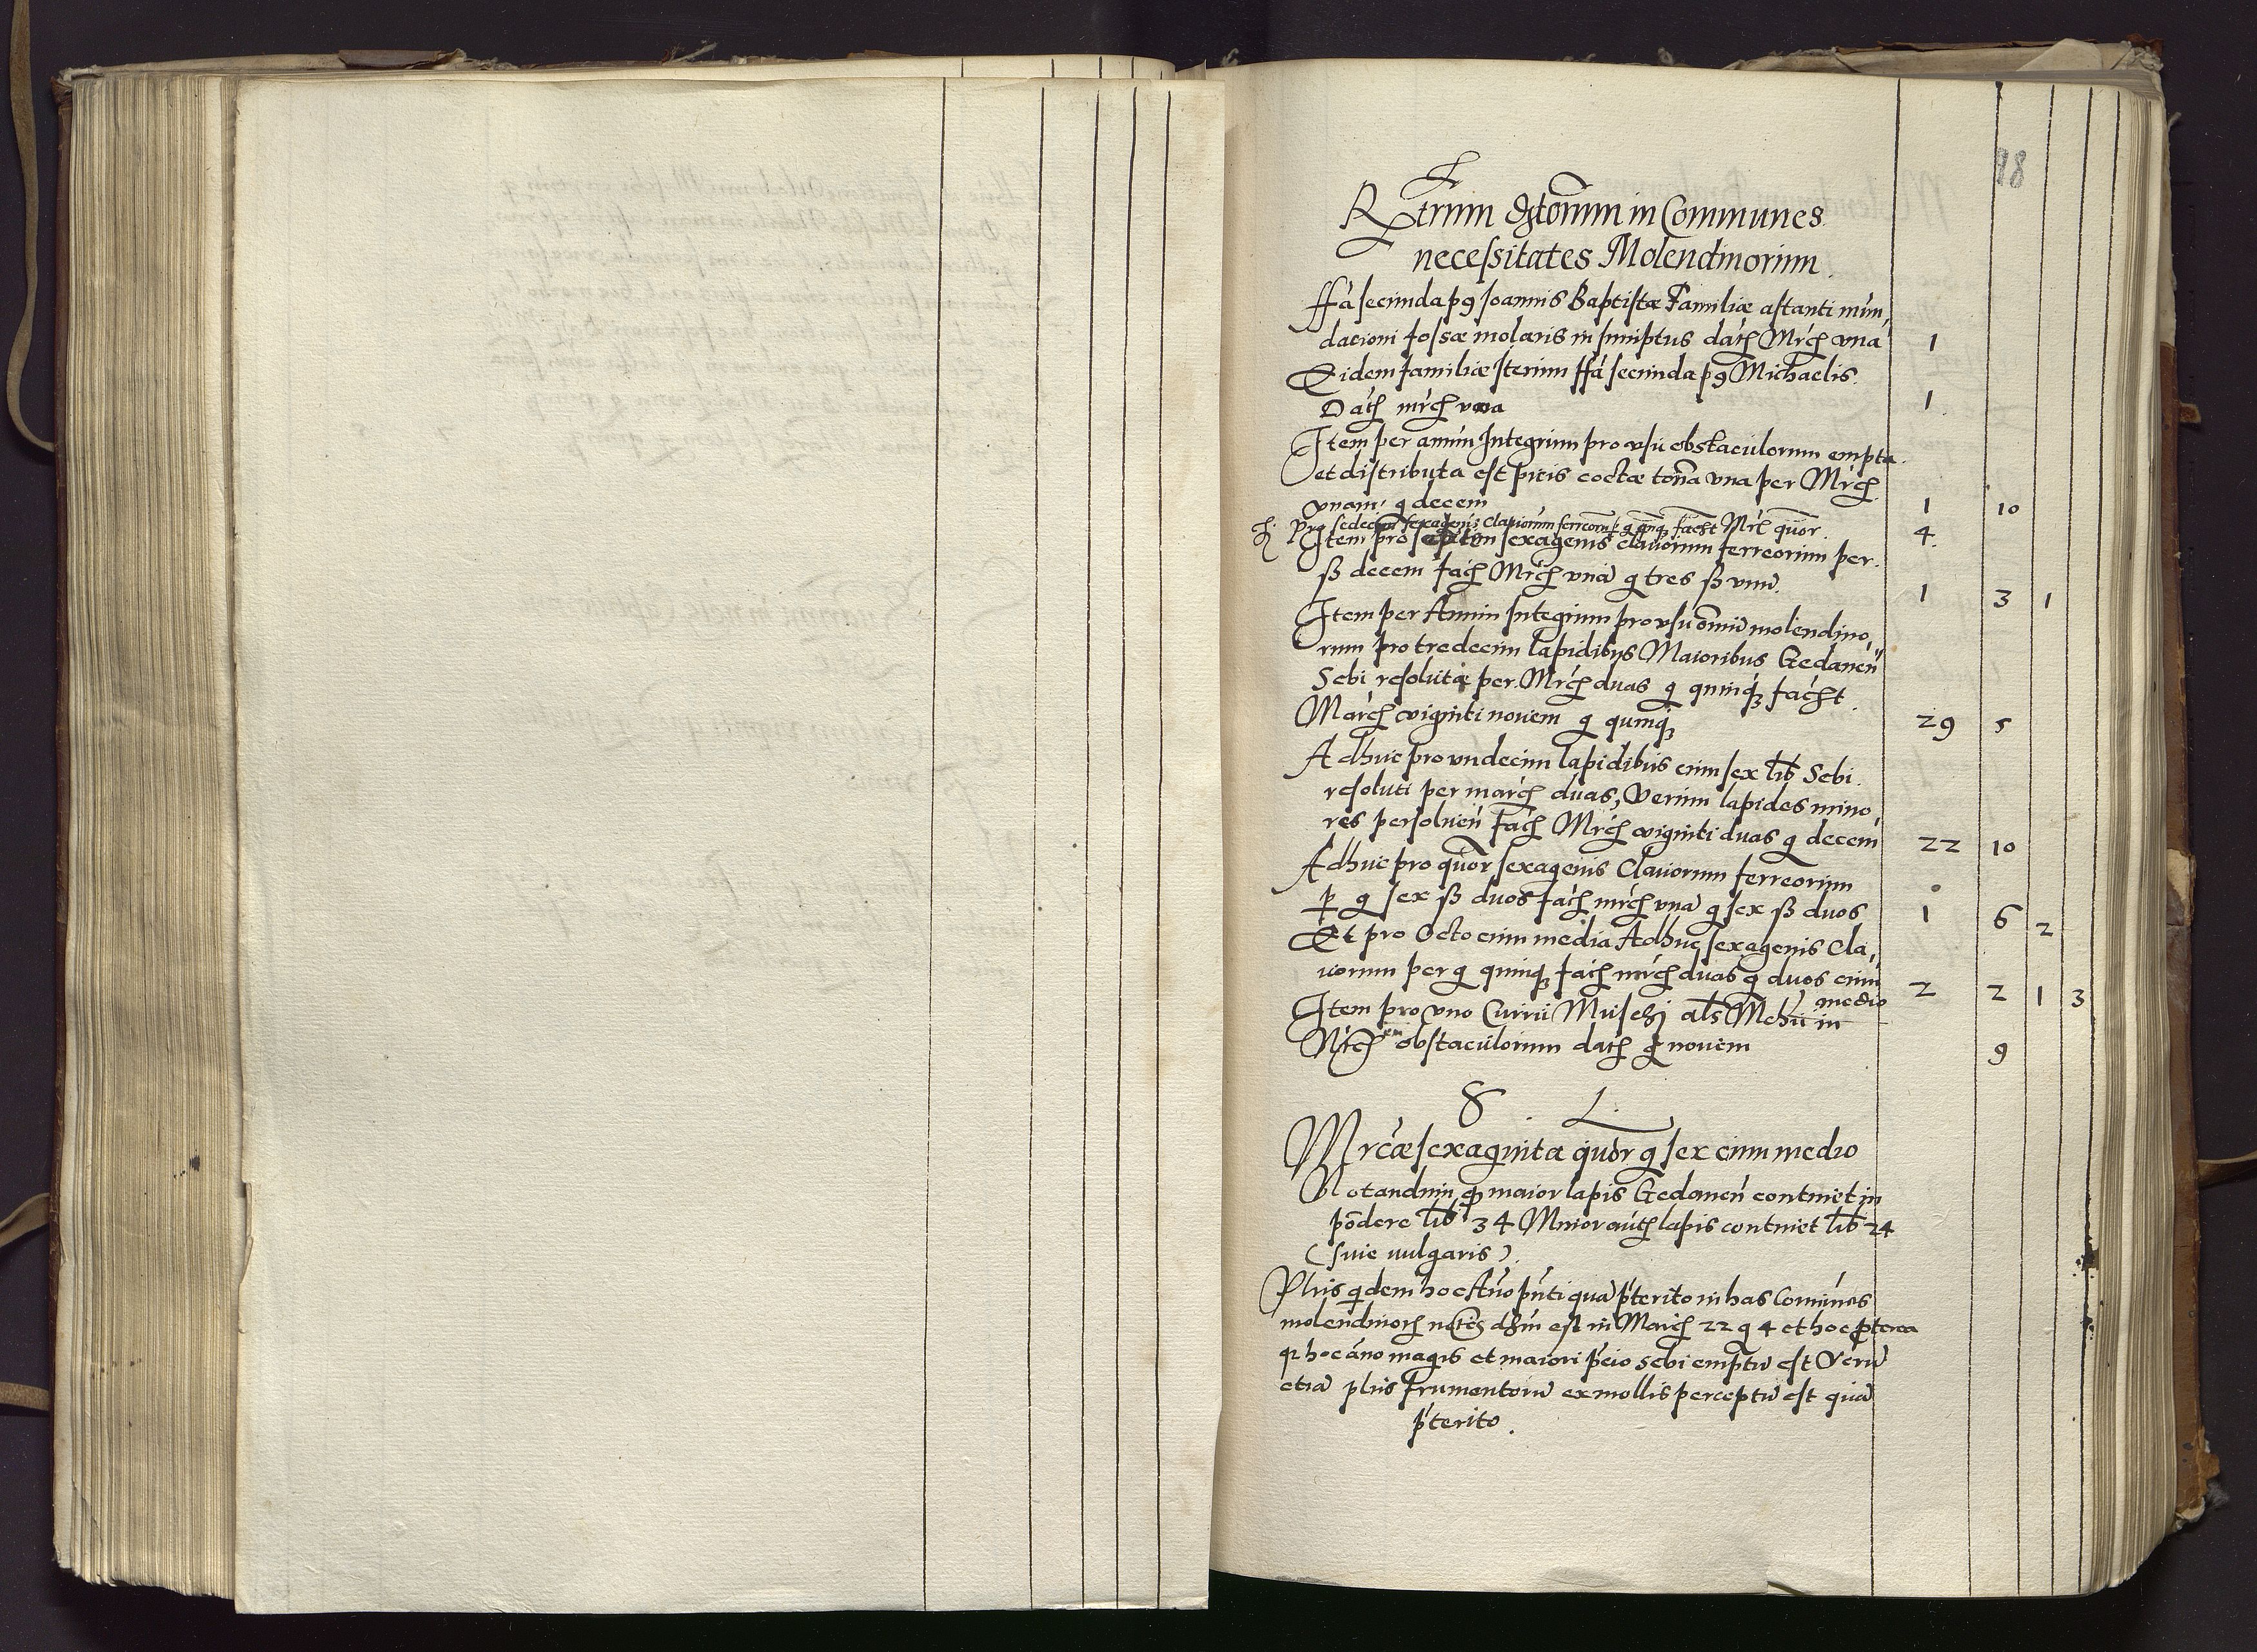 98
Rerum distorum in Communes
necessitates Molendinorum.
ffa secunda pꝰ Joannis Baptistæ Familiæ astanti mun,
dacioni fossæ molaris in sumptus datꝭ Mrcꝭ vnā 1
Eidem familiæ Iterum ffa secunda pꝰ Michaelis.
Datꝭ mrcꝭ vna 1
Item per annū Integrum pro vsu obstaculorum empta
et distributa est picis coctæ toña vna per Mrcꝭ
vnam, g decem 1 10
Pro sedecim sexagenis Clauorum ferreorum p g qinqꝫ facꝭt Mrc quor. 4
Item pro septem sexagenis clauorum ferreorum per
ß decem facꝭ Mrcꝭ vnā g tres ß vnū. 1 3 1
Item per Annum Integrum pro vsu omniū molendino,
rum pro tredecim lapidibus Maioribus Gedaneñ
Sebi resolutæ per Mrcꝭ duas g quinqꝫ facꝭt
Marcꝭ viginti novem g quinqꝫ 29 5
Adhuc pro vndecim lapidibus cum sex lib Sebi
resoluti per marcꝭ duas, Verum lapides mino,
res persolueñ facꝭ Mrcꝭ viginti duas g decem 22 10
Adhuc pro quor sexagenis Clauorum ferreorum
p g sex ß duos facꝭ mrcꝭ vnā g sex ß duos 1 6 2
Et pro Octo cum media Adhuc sexagenis Cla,
uorum per g quinqꝫ facꝭ mrcꝭ duas g duos cum
medio 2 2 1 3
Item pro vno Curru Muschj als Mchu in
Nrcꝭ obstaculorum datꝭ g novem 9
S. L.
Mrcæ sexaginta quor g sex cum medio
Notandum qꝫ maior lapis Gedaneñ continet in
põdere lib 34 Minor autꝭ lapis continet lib 24
(siue vulgaris).
Plus qdem hoc Año pñti quā pterito in has Comūnes
molendinorꝭ ncꝭ dstm est in Marcꝭ 22 g 4 et hoc ꝓterea
qꝛ hoc año magis et maiori pcio sebi emptū est Verū
etiā plus frumentorū ex mollis perceptū est quā
pterito.